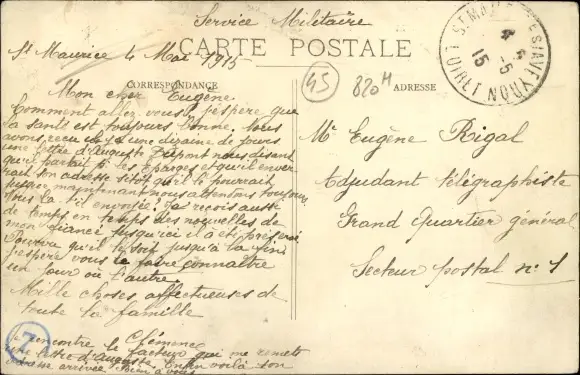 Service Militaire
CARTE POSTALE
St Maurice 4 Mai 1915
CORRESPONDANCE
ADRESSE
45
820H
ST MAURICE S/AVEYRON
4-5
15
LOIRET
Mon cher Eugène.
Comment allez-vous j'espère que
la santé est toujours bonne. Nous
avons reçu il y a une dizaine de jours
une lettre d'Auguste Dupont nous disant
qu'il partait pr les Eparges et qu'il enver
rait son adresse sitôt qu'il le pourrait
maintenant nous attendons toujours
J'ai reçois aussi
de temps en temps des nouvelles de
mon fiancé jusqu'ici il a été préservé
qu'il le soit jusqu'à la fin
j'espère vous le faire connaître
un jour où l'autre.
Mille choses affectueuses de
toute la famille
Clémence
Je rencontre le facteur qui me remets
une lettre d'Auguste. Enfin voilà son
adresse arrivée. Bien à vous
Mr Eugène Rigal
Adjudant télégraphiste
Grand Quartier général
Secteur postal n° 1
Z